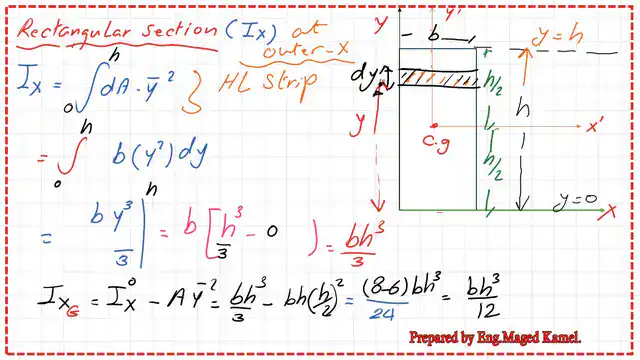 Rectangular section (Ix) at
outer-x
Ix = ∫₀ʰ dA · ȳ² } HL strip
= ∫₀ʰ b(y²)dy
= b y³/3 |ʰ = b [h³/3 - 0 ) = bh³/3
I_xG = I_x⁰ - Aȳ² = bh³/3 - bh(h/2)² = (8-6)bh³/24 = bh³/12
y y'
b
y=h
dy
h/2
y
h
c.g
x'
h/2
y=0
x
Prepared by Eng.Maged Kamel.